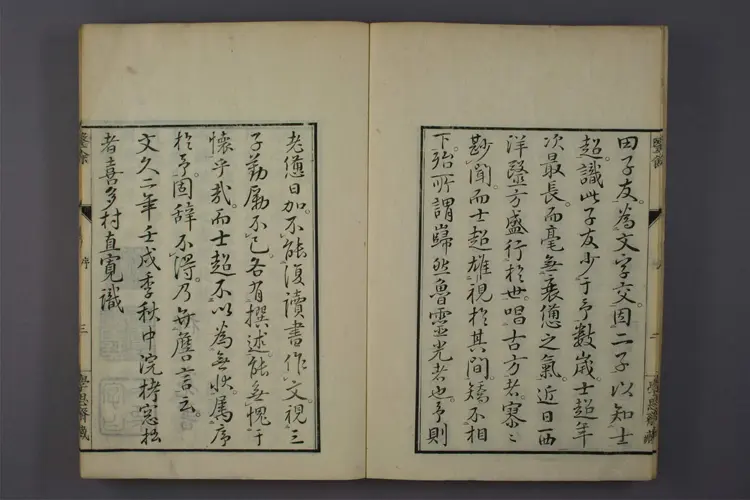 醫餘
序
二
學思齋藏
田子友。為文字交。因二子以知士
超。識此子友少于予數歲。士超年
次最長。而毫無衰憊之氣。近日西
洋毉方盛行於世。唱古方者。寥〻
尠聞。而士超雄視於其間。矯不相
下。殆所謂巋然魯靈光者也。予則
老憊日加。不能復讀書作文。視三
子勤勵不已。各有撰述。能無愧于
懷乎哉。而士超不以為無狀。屬序
於予。固辭不得。乃弁言云。
文久二年壬戌季秋中浣栲窓松
者喜多村直寛識
醫餘
序
三
學思齋藏